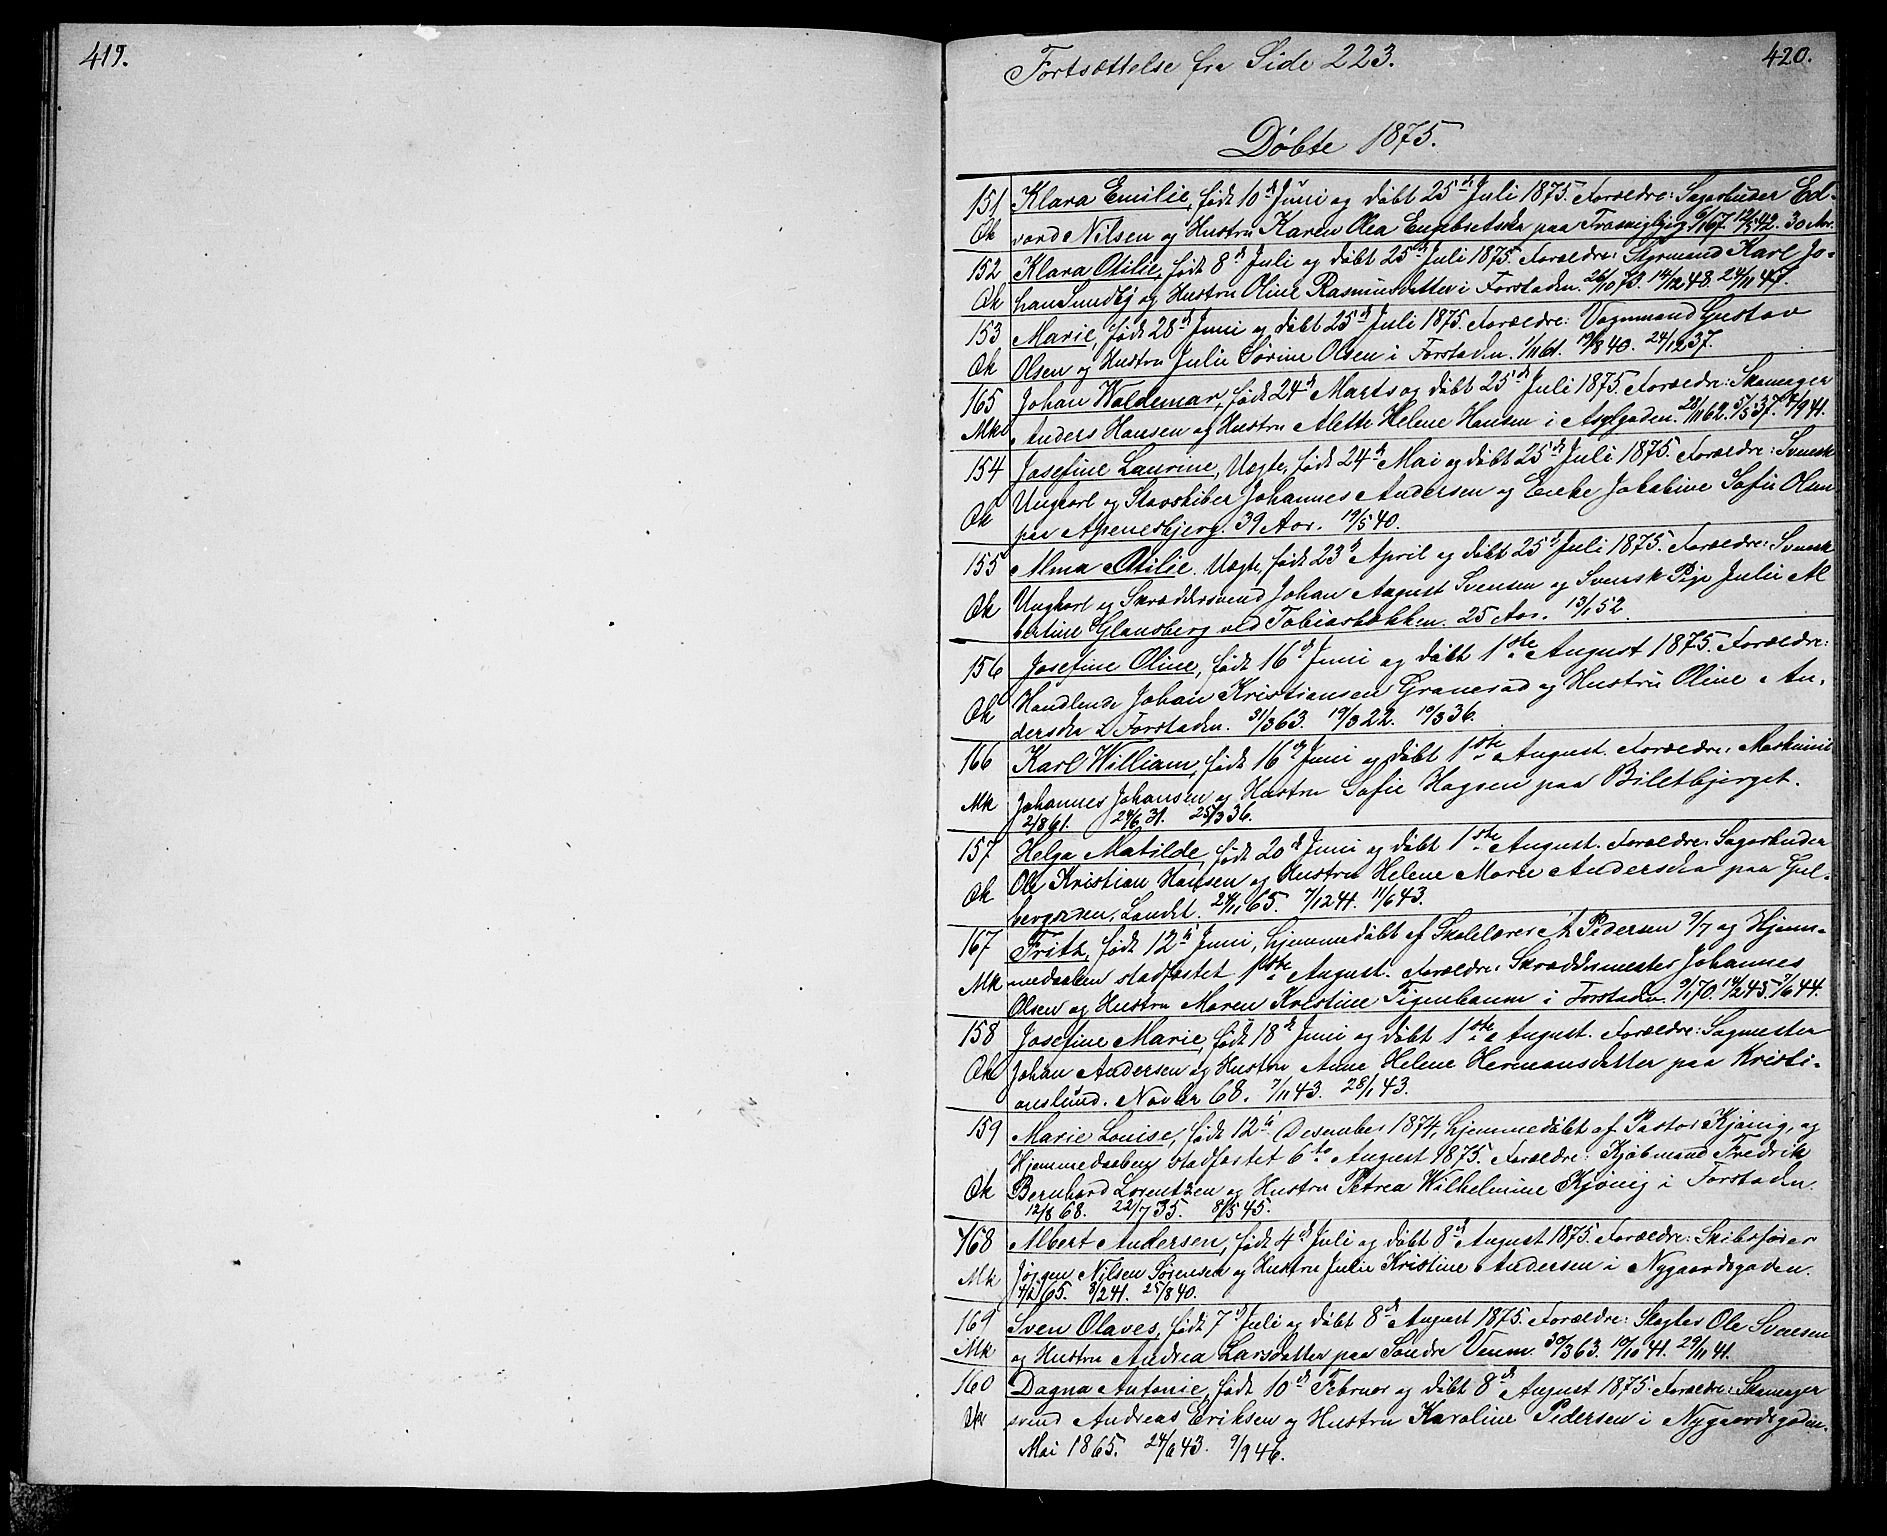 419.
Fortsættelse fra Side 223.
420.
Døbte 1875.
151 Klara Emilie, født 10de Juni og døbt 25de Juli 1875. Forældre: Sagarbeider Ed-
Qk vard Nilsen og Hustru Karen Olea Engebretsda paa Trosvigbjerg 6/1 67. 12/5 42. 30 Aar.
152 Klara Otilie, født 8de Juli og døbt 25de Juli 1875. Forældre: Styrmand Karl Jo-
Qk han Sundby og Hustru Oline Rasmusdatter i Forstaden. 26/10 73. 14/12 48. 24/11 47.
153 Marie, født 28de Juni og døbt 25de Juli 1875. Forældre: Vognmand Gustav
Qk Olsen og Hustru Julie Sørine Olsen i Forstaden. 1/11 61. 19/8 40. 24/12 37.
165 Johan Waldemar, født 24de Marts og døbt 25de Juli 1875. Forældre: Skomager
Mk Anders Hansen og Hustru Alette Helene Hansen i Asylgaden. 28/11 62. 5/5 37. 4/9 41.
154 Josefine Laurine, Uægte, født 24de Mai og døbt 25de Juli 1875. Forældre: Svensk
Qk Ungkarl og Johannes Andersen og Enke Jakobine Sofie Olsen
paa Apenesbjerg. 39 Aar. 19/5 40.
155 Alma Otilie. Uægte, født 23de April og døbt 25de Juli 1875. Forældre: Svensk
Qk Ungkarl og Skræddersvend Johan August Svensen og Svensk Pige Julie Al
bertine Glansberg ved Tobiasbakken. 25 Aar. 13/1 52.
156 Josefine Oline, født 16de Juni og døbt 1ste August 1875. Forældre:
Qk Handlende Johan Kristiansen Granerød og Hustru Oline An-
dersda i Forstaden. 31/3 63. 19/3 22. 19/3 36.
166 Karl William, født 16de Juni og døbt 1ste August. Forældre: Maskinist
Mk Johannes Johansen og Hustru Sofie Hagsen paa Biletbjerget.
2/8 61. 24/6 31. 25/3 36.
157 Helga Matilde, født 20de Juni og døbt 1ste August. Forældre: Sagarbeider
Qk Ole Kristian Hansen og Hustru Helene Marie Andersda paa Gul-
bergsmen, Landet. 24/11 65. 7/12 41. 11/6 43.
167 Fritz, født 12te Juni, hjemmedøbt af Skolelærer A. Pedersen 9/7 og Hjem-
Mk medaaben stadfæstet 1ste August. Forældre: Skræddermester Johannes
Olsen og Hustru Maren Kristine Figenbaum i Forstaden. 9/1 70. 14/2 43. 7/6 44.
158 Josefine Marie, født 18de Juni og døbt 1ste August. Forældre: Sagmester
Qk Johan Andersen og Hustru Anne Helene Hermansdatter paa Kristi-
anslund. Novber 68. 7/11 43. 28/1 43.
159 Marie Louise, født 12te Desember 1874, hjemmedøbt af Pastor Kjønig, og
Hjemmedaaben stadfæstet 6te August 1875. Forældre: Kjøbmand Fredrik
Qk Bernhard Lorentzen og Hustru Petrea Wilhelmine Kjønig i Forstaden.
12/8 68. 22/7 35. 8/5 45.
168 Albert Andersen, født 4de Juli og døbt 8de August 1875. Forældre: Skibsfører
Mk Jørgen Nilsen Sørensen og Hustru Julie Kristine Andersen i Nygaardsgaden.
4/2 65. 8/2 41. 25/8 40.
169 Sven Olaves, født 7de Juli og døbt 8de August 1875. Forældre: Slagter Ole Svensen
Mk og Hustru Andrea Larsdatter paa Søndre Veum. 30/3 63. 10/10 41. 29/11 41.
160 Dagna Antonie, født 10de Februar og døbt 8de August 1875. Forældre: Skomager
Qk svend Andreas Eriksen og Hustru Karoline Pedersen i Nygaardsgaden.
Mai 1865. 24/6 43. 9/9 46.